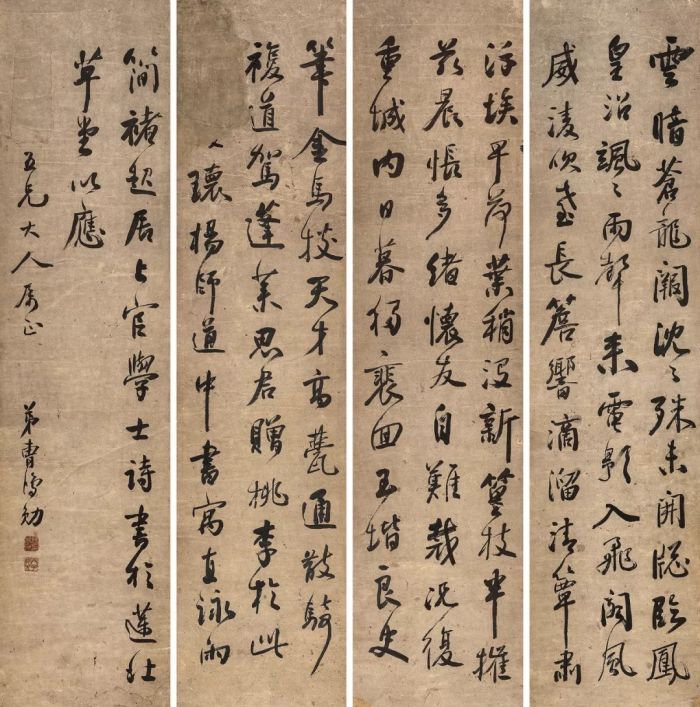 雲暗蒼龍闕沈〻殊未開牕臨鳳
皇沼颯〻雨聲来電影入飛閣風
威凌吹臺長簷響滴溜清簟肅
浮埃早荷葉稍没新篁枝半摧
茲晨悵多緒懷友自難裁況復
重城内日暮獨裴回玉堦良史
筆金馬掞天才高甍通散騎
複道駕蓬莱思君贈桃李於此
瓌楊師道中書寓直詠雨
簡褚起居上官學士詩書於蓮社
草堂以應
五兄大人属正
弟曹鴻勛